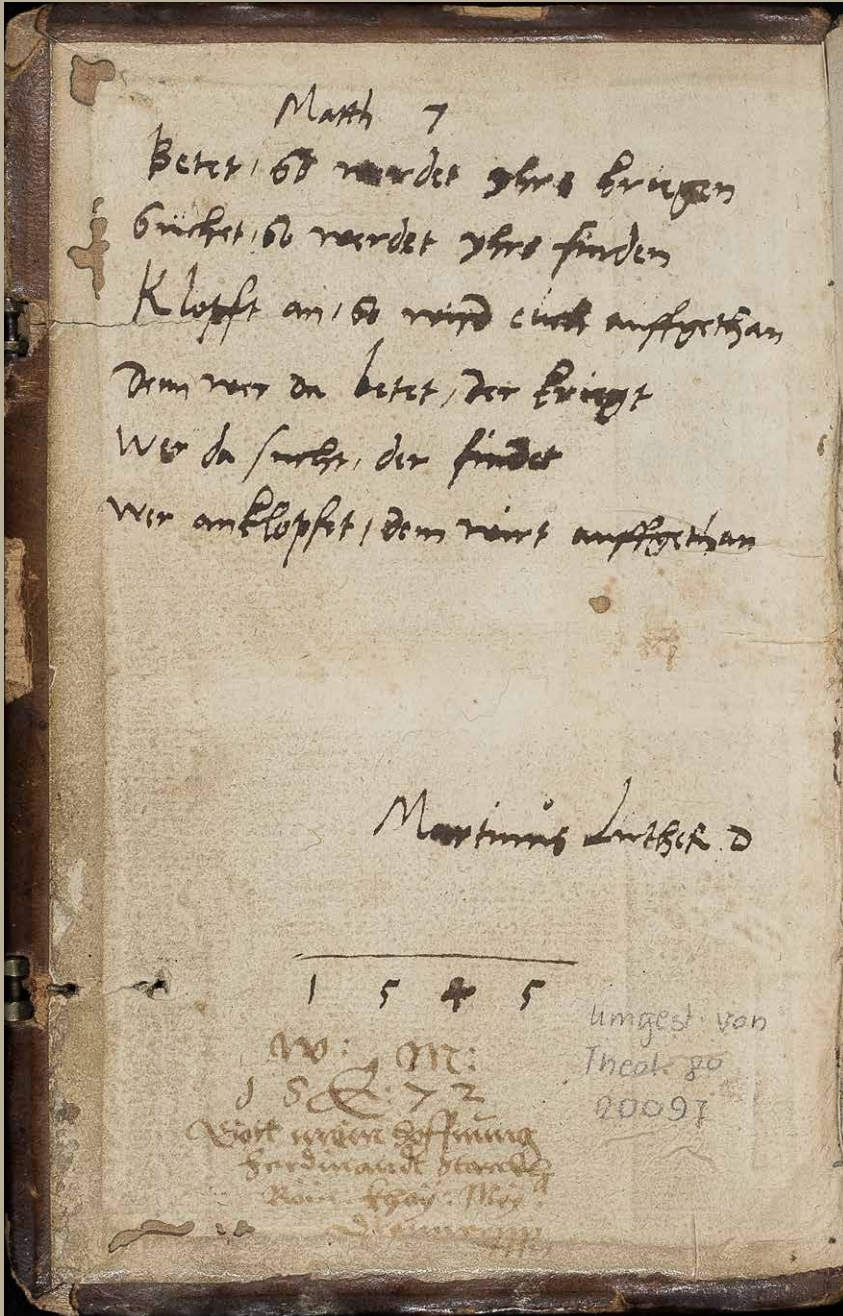 Matth 7
Betet, so werdet yhrs kriegen
Suchet, so werdet yhrs finden
Klopft an, so wird euch auffgethan
Denn wer da betet, der kriegt
Wer da sucht, der findet
Wer anklopfet, dem wirt auffgethan
Martinus Luther D
1 5 4 5
W: M:
1 5 : 7 2
Gott mein Hoffnung
Ferdinandt
Röm: Khay: May:
umgest. von
Theol. 8o
20097